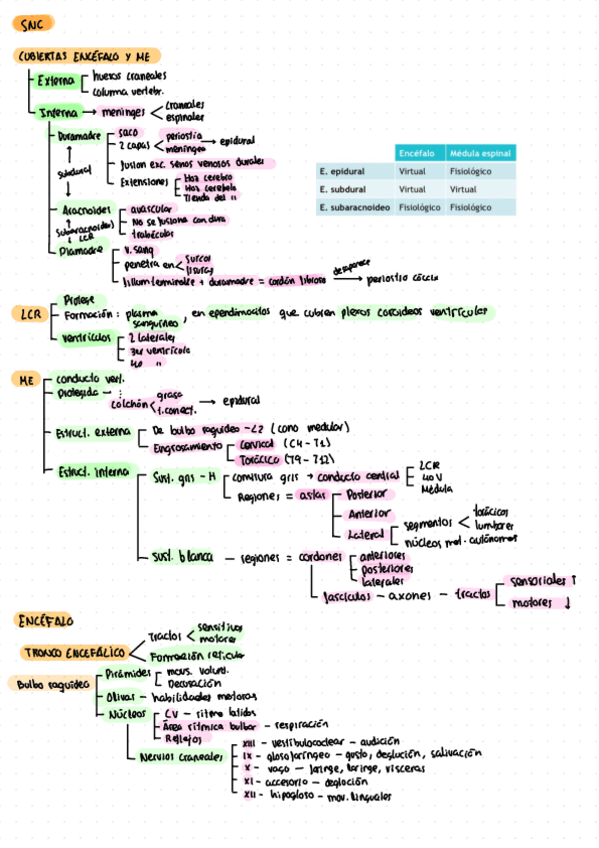 SNC
CUBIERTAS ENCÉFALO Y ME
Externa
huesos craneales
columna vertebr.
Interna → meninges
craneales
espinales
Duramadre
saco
2 capas
periostio
meningea
→ epidural
fusion exc. senos venosos durales
Extensiones
Hoz cerebro
Hoz cerebelo
Tienda del "
Subdural
Aracnoides
avascular
No se fusiona con dura
trabéculas
Subaracnoideo
LCR
Piamadre
V. sang
penetra en
surcos
fisuras
filum terminale + duramadre = cordón fibroso
desaparece
→ periostio cóccix
Encéfalo Médula espinal
E. epidural Virtual Fisiológico
E. subdural Virtual Virtual
E. subaracnoideo Fisiológico Fisiológico
LCR
Protege
Formación : plasma sanguíneo, en ependimocitos que cubren plexos coroideos ventrículos
Ventrículos
2 laterales
3er ventrículo
4o "
ME
conducto vert.
Protegida
colchón
grasa
t. conect.
→ epidural
Estruct. externa
De bulbo raquídeo - L2 (cono medular)
Engrosamiento
Cervical (C4 - T1)
Torácico (T9 - T12)
Estruct. interna
Sust. gris - H
comisura gris → conducto central
LCR
4o V
Médula
Regiones = astas
Posterior
Anterior
Lateral
segmentos
torácicos
lumbares
núcleos mot. autónomos
Sust. blanca - regiones = cordones
anteriores
posteriores
laterales
fascículos - axones - tractos
sensoriales ↑
motores ↓
ENCÉFALO
TRONCO ENCEFÁLICO
Tractos
sensitivos
motores
Formación reticular
Bulbo raquídeo
Pirámides
movs. volunt.
Decusación
Olivas - habilidades motoras
Núcleos
CV - ritmo latidos
Área rítmica bulbar - respiración
Reflejos
Nervios craneales
XIII - vestibulococlear - audición
IX - glosofaríngeo - gusto, deglución, salivación
X - vago - faringe, laringe, vísceras
XI - accesorio - deglución
XII - hipogloso - mov. linguales